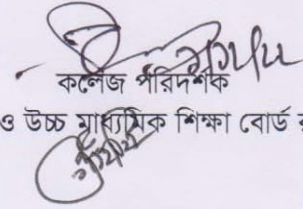 কলেজ পরিদর্শক
ও উচ্চ মাধ্যমিক শিক্ষা বোর্ড